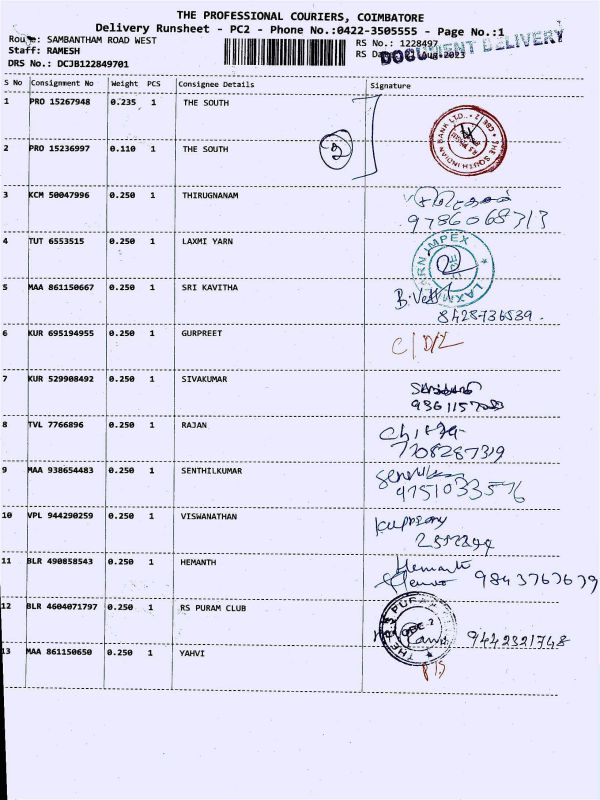 THE PROFESSIONAL COURIERS, COIMBATORE
Delivery Runsheet - PC2 - Phone No.:0422-3505555 - Page No.:1
Route: SAMBANTHAM ROAD WEST
RS No.: 1228497
Staff: RAMESH
RS Da Aug-2023
DOCUMENT DELIVERY
DRS No.: DCJB122849701
S No Consignment No Weight PCS Consignee Details Signature
1 PRO 15267948 0.235 1 THE SOUTH
THE SOUTH INDIAN BANK LTD.,
2 PRO 15236997 0.110 1 THE SOUTH
2
3 KCM 50047996 0.250 1 THIRUGNANAM
9786068313
4 TUT 6553515 0.250 1 LAXMI YARN
LAXMI YARN IMPEX
5 MAA 861150667 0.250 1 SRI KAVITHA
8428736539.
6 KUR 695194955 0.250 1 GURPREET
C/D/L
7 KUR 529908492 0.250 1 SIVAKUMAR
8 TVL 7766896 0.250 1 RAJAN
7708287319
9 MAA 938654483 0.250 1 SENTHILKUMAR
9751033576
10 VPL 944290259 0.250 1 VISWANATHAN
11 BLR 490858543 0.250 1 HEMANTH
Hemanth
9843763639
12 BLR 4604071797 0.250 1 RS PURAM CLUB
9442321748
13 MAA 861150650 0.250 1 YAHVI